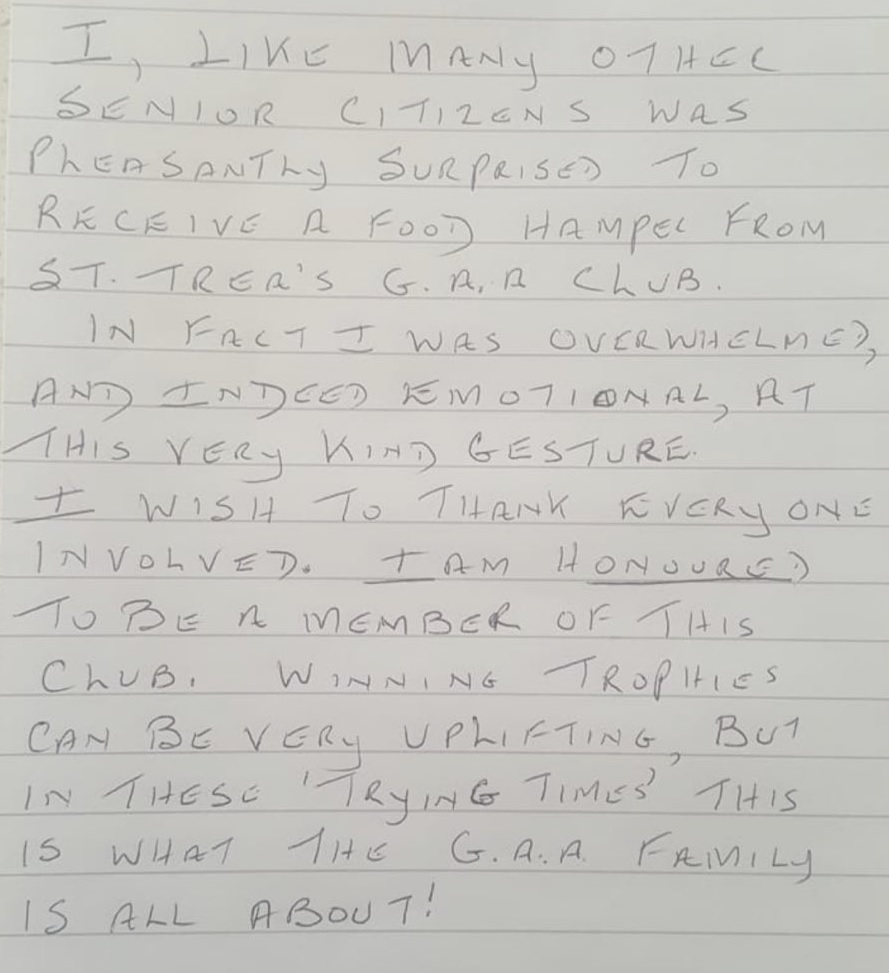 I, LIKE MANY OTHER
SENIOR CITIZENS WAS
PLEASANTLY SURPRISED TO
RECEIVE A FOOD HAMPER FROM
ST. TREA'S G.A.A CLUB.
IN FACT I WAS OVERWHELMED,
AND INDEED EMOTIONAL, AT
THIS VERY KIND GESTURE.
I WISH TO THANK EVERY ONE
INVOLVED. I AM HONOURED
TO BE A MEMBER OF THIS
CLUB. WINNING TROPHIES
CAN BE VERY UPLIFTING, BUT
IN THESE 'TRYING TIMES' THIS
IS WHAT THE G.A.A. FAMILY
IS ALL ABOUT!